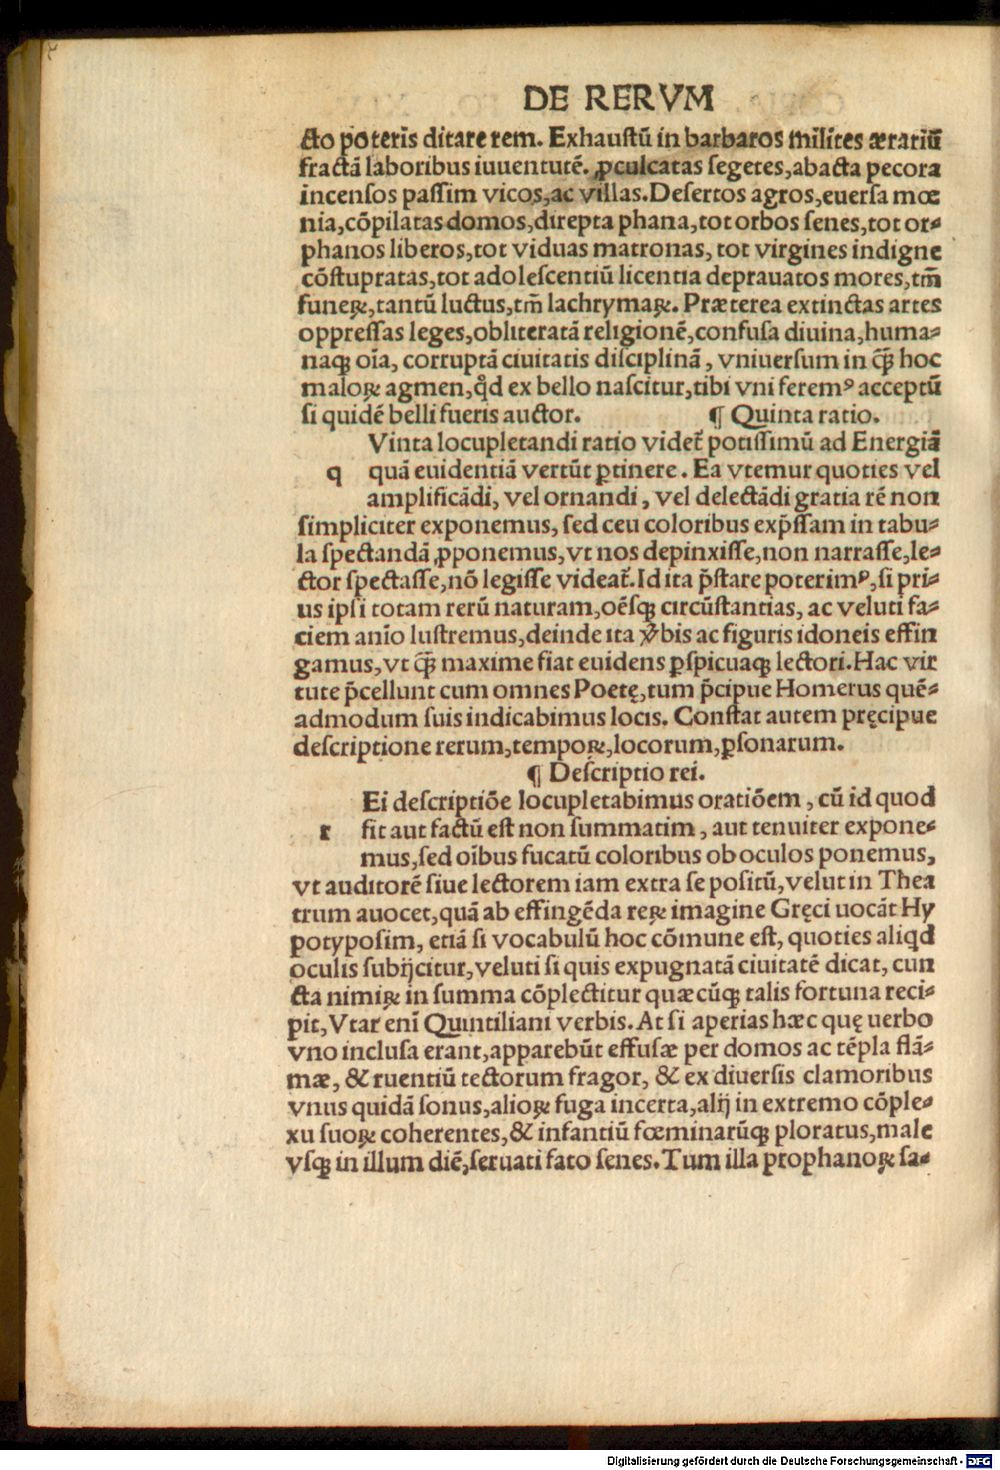 DE RERVM
cto poteris ditare rem. Exhaustū in barbaros milites ærariū
fractā laboribus iuuentutē. ꝓculcatas segetes, abacta pecora
incensos passim vicos, ac villas. Desertos agros, euersa mœ
nia, cōpilatas domos, direpta phana, tot orbos senes, tot or⸗
phanos liberos, tot viduas matronas, tot virgines indigne
cōstupratas, tot adolescentiū licentia deprauatos mores, tm̄
funeꝝ, tantū luctus, tm̄ lachrymaꝝ. Præterea extinctas artes
oppressas leges, obliteratā religionē, confusa diuina, huma⸗
naqꝫ oīa, corruptā ciuitatis disciplinā, vniuersum in q̄ꝫ hoc
maloꝝ agmen, qd̓ ex bello nascitur, tibi vni feremꝰ acceptū
si quidē belli fueris auctor. ¶ Quinta ratio.
Vinta locupletandi ratio videt̃ potissimū ad Energiā
q quā euidentiā vertūt ꝑtinere. Ea vtemur quoties vel
amplificādi, vel ornandi, vel delectādi gratia rē non
simpliciter exponemus, sed ceu coloribus exp̄ssam in tabu⸗
la spectandā ꝓponemus, vt nos depinxisse, non narrasse, le⸗
ctor spectasse, nō legisse videat̃. Id ita p̄stare poterimꝰ, si pri⸗
us ipsi totam rerū naturam, oēsqꝫ circūstantias, ac veluti fa⸗
ciem anīo lustremus, deinde ita v̓bis ac figuris idoneis effin
gamus, vt q̄ꝫ maxime fiat euidens ꝑspicuaqꝫ lectori. Hac vir
tute p̄cellunt cum omnes Poetę, tum p̄cipue Homerus quē⸗
admodum suis indicabimus locis. Constat autem pręcipue
descriptione rerum, tempoꝝ, locorum, ꝑsonarum.
¶ Descriptio rei.
Ei descriptiōe locupletabimus oratiōem, cū id quod
r fit aut factū est non summatim, aut tenuiter expone⸗
mus, sed oībus fucatū coloribus ob oculos ponemus,
vt auditorē siue lectorem iam extra se positū, velut in Thea
trum auocet, quā ab effingēda reꝝ imagine Gręci uocāt Hy
potyposim, etiā si vocabulū hoc cōmune est, quoties aliqd̓
oculis subijcitur, veluti si quis expugnatā ciuitatē dicat, cun
cta nimiꝝ in summa cōplectitur quæcūqꝫ talis fortuna reci⸗
pit, Vtar enī Quintiliani verbis. At si aperias hæc quę uerbo
vno inclusa erant, apparebūt effusæ per domos ac tēpla flā⸗
mæ, & ruentiū tectorum fragor, & ex diuersis clamoribus
vnus quidā sonus, alioꝝ fuga incerta, alij in extremo cōple⸗
xu suoꝝ coherentes, & infantiū fœminarūqꝫ ploratus, male
vsqꝫ in illum diē, seruati fato senes. Tum illa prophanoꝝ sa⸗
Digitalisierung gefördert durch die Deutsche Forschungsgemeinschaft - DFG